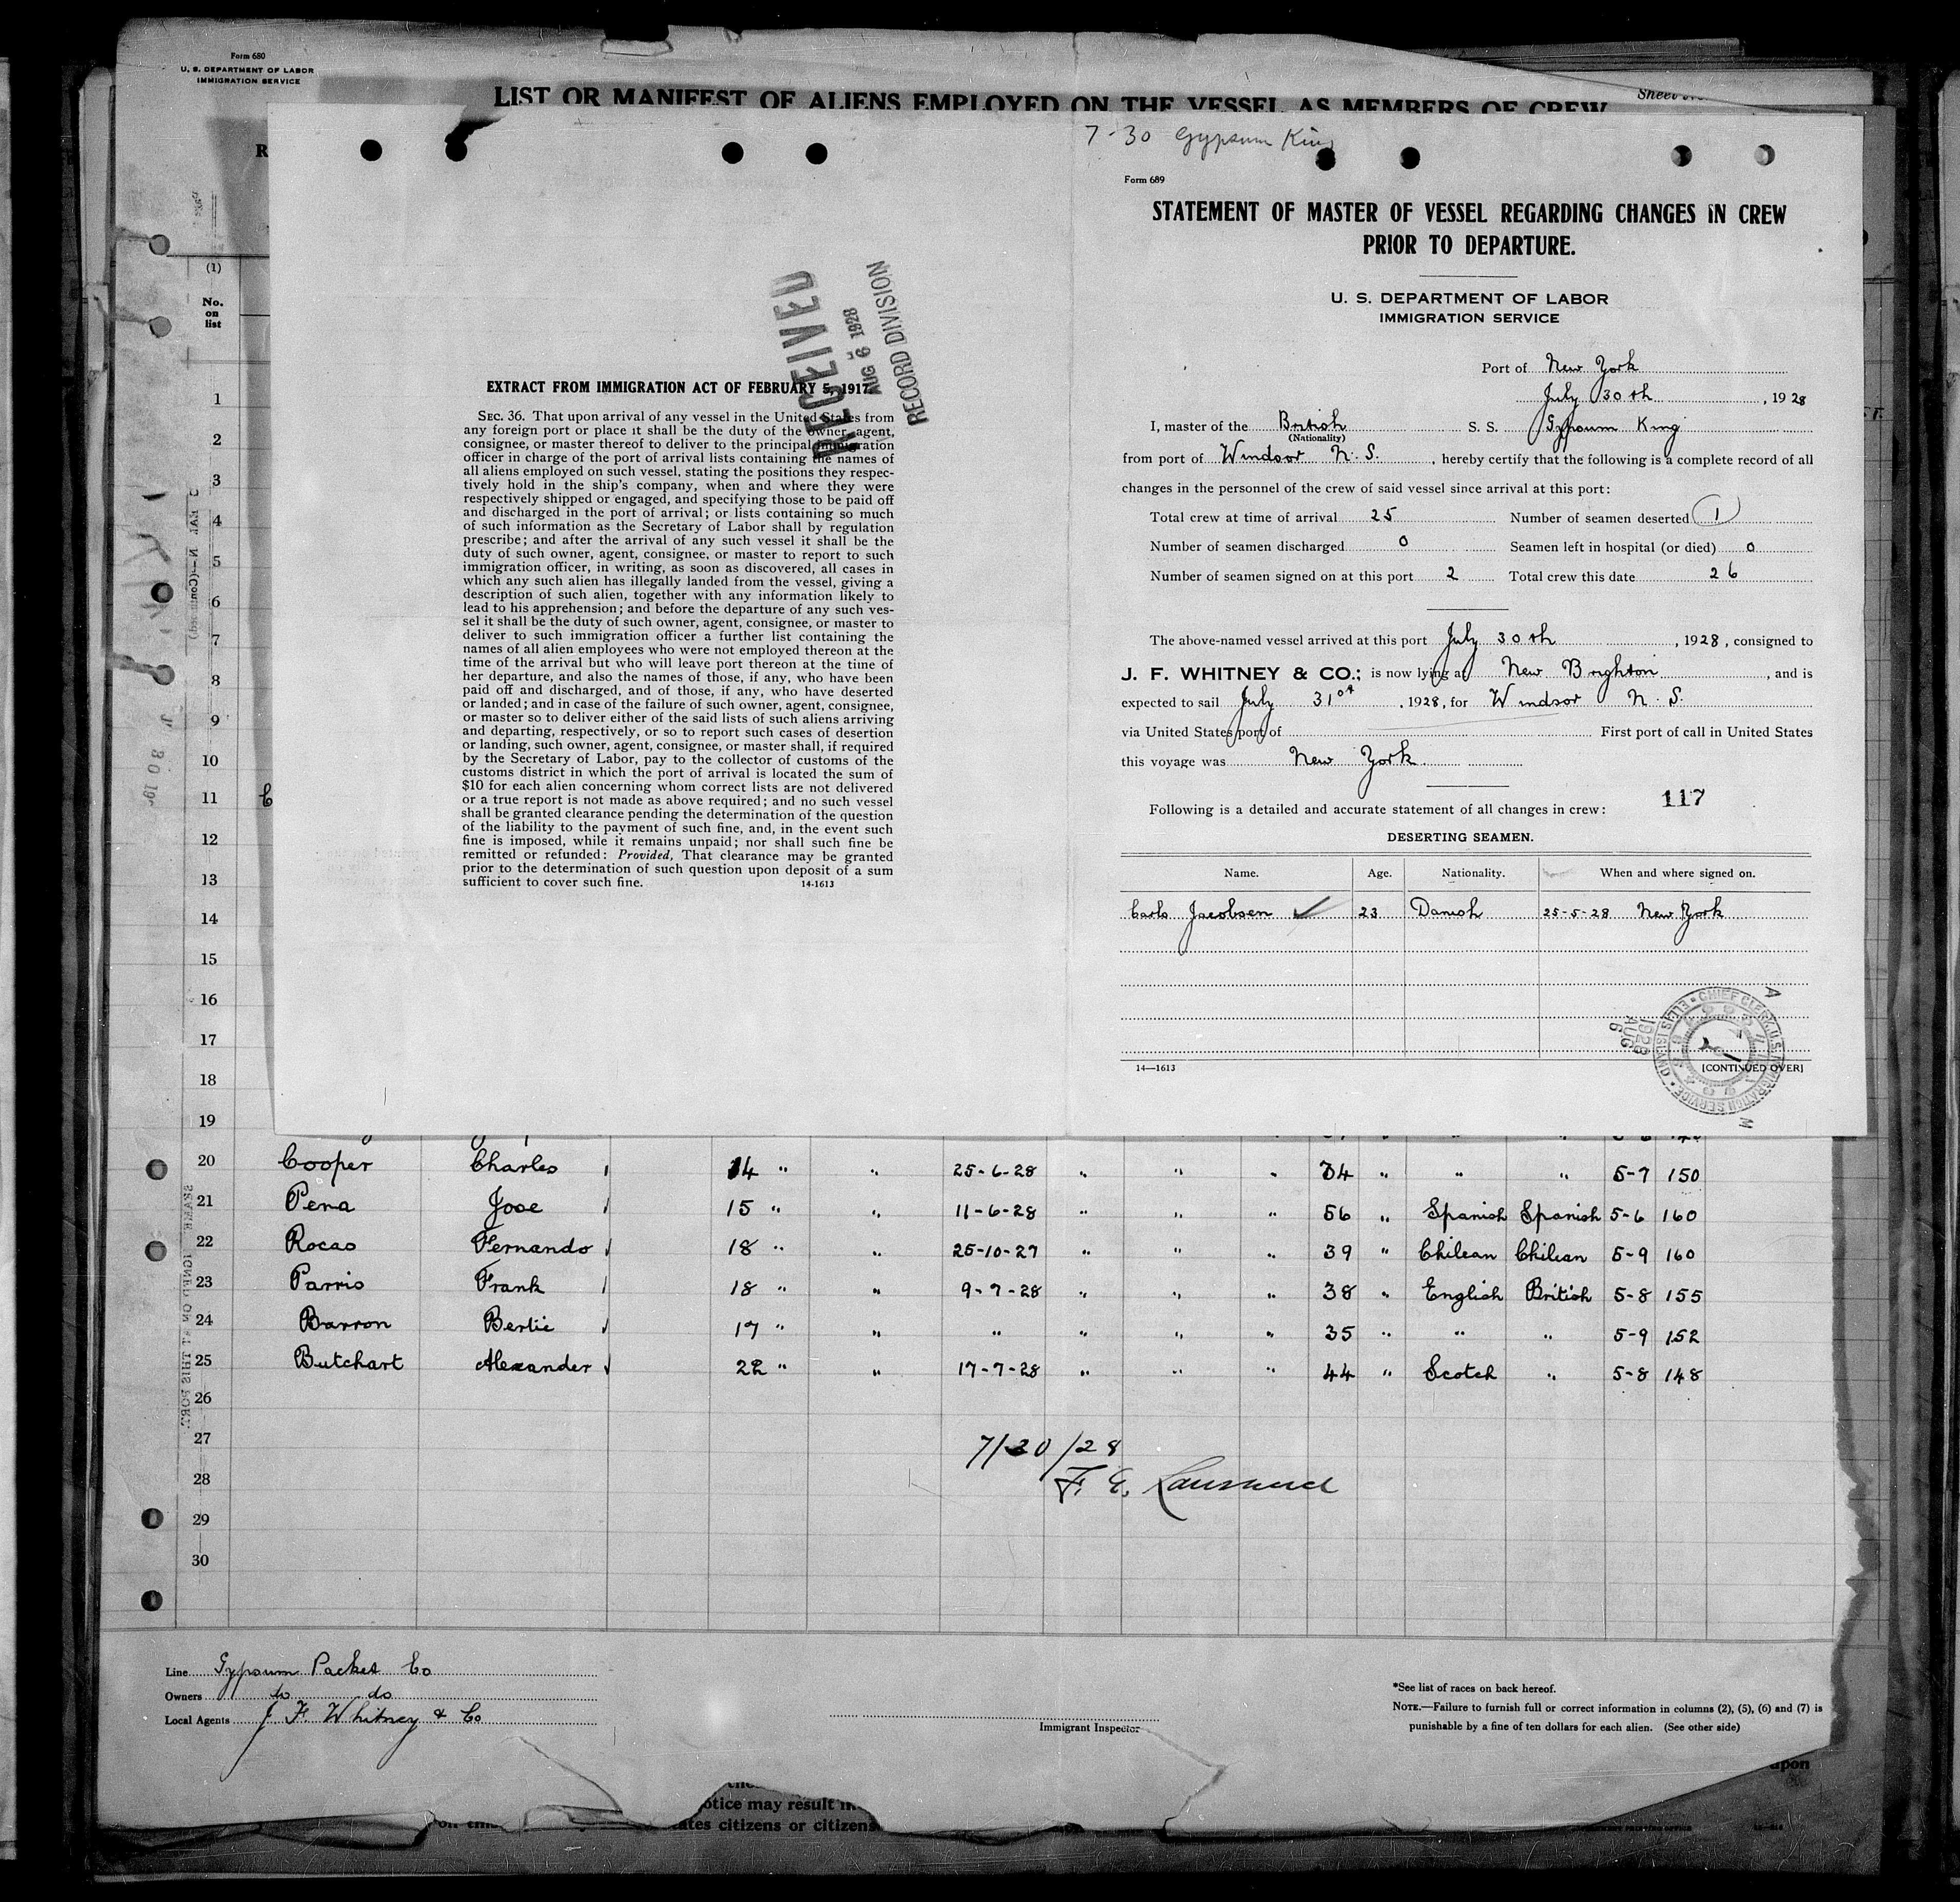 Form 680
U. S. DEPARTMENT OF LABOR
IMMIGRATION SERVICE
LIST OR MANIFEST OF ALIENS EMPLOYED ON THE VESSEL AS MEMBERS OF CREW
Sheet
R
(1)
No.
on
list
1
2
3
4
5
6
7
8
9
10
11
12
13
14
15
16
17
18
19
RECEIVED
AUG 6 1928
RECORD DIVISION
EXTRACT FROM IMMIGRATION ACT OF FEBRUARY 5, 1917.
SEC. 36. That upon arrival of any vessel in the United States from
any foreign port or place it shall be the duty of the owner, agent,
consignee, or master thereof to deliver to the principal immigration
officer in charge of the port of arrival lists containing the names of
all aliens employed on such vessel, stating the positions they respec-
tively hold in the ship's company, when and where they were
respectively shipped or engaged, and specifying those to be paid off
and discharged in the port of arrival; or lists containing so much
of such information as the Secretary of Labor shall by regulation
prescribe; and after the arrival of any such vessel it shall be the
duty of such owner, agent, consignee, or master to report to such
immigration officer, in writing, as soon as discovered, all cases in
which any such alien has illegally landed from the vessel, giving a
description of such alien, together with any information likely to
lead to his apprehension; and before the departure of any such ves-
sel it shall be the duty of such owner, agent, consignee, or master to
deliver to such immigration officer a further list containing the
names of all alien employees who were not employed thereon at the
time of the arrival but who will leave port thereon at the time of
her departure, and also the names of those, if any, who have been
paid off and discharged, and of those, if any, who have deserted
or landed; and in case of the failure of such owner, agent, consignee,
or master so to deliver either of the said lists of such aliens arriving
and departing, respectively, or so to report such cases of desertion
or landing, such owner, agent, consignee, or master shall, if required
by the Secretary of Labor, pay to the collector of customs of the
customs district in which the port of arrival is located the sum of
$10 for each alien concerning whom correct lists are not delivered
or a true report is not made as above required; and no such vessel
shall be granted clearance pending the determination of the question
of the liability to the payment of such fine, and, in the event such
fine is imposed, while it remains unpaid; nor shall such fine be
remitted or refunded: Provided, That clearance may be granted
prior to the determination of such question upon deposit of a sum
sufficient to cover such fine. 14-1613
7-30 Gypsum King
Form 689
STATEMENT OF MASTER OF VESSEL REGARDING CHANGES IN CREW
PRIOR TO DEPARTURE.
U. S. DEPARTMENT OF LABOR
IMMIGRATION SERVICE
Port of New York
July 30th, 1928
I, master of the British S. S. Gypsum King
(Nationality)
from port of Windsor N. S., hereby certify that the following is a complete record of all
changes in the personnel of the crew of said vessel since arrival at this port:
Total crew at time of arrival 25 Number of seamen deserted 1
Number of seamen discharged 0 Seamen left in hospital (or died) 0
Number of seamen signed on at this port 2 Total crew this date 26
The above-named vessel arrived at this port July 30th, 1928, consigned to
J. F. WHITNEY & CO.; is now lying at New Brighton, and is
expected to sail July 31st, 1928, for Windsor N. S.
via United States port of First port of call in United States
this voyage was New York
117
Following is a detailed and accurate statement of all changes in crew:
DESERTING SEAMEN.
Name. Age. Nationality. When and where signed on.
Carlo Jacobsen ✓ 23 Danish 25-5-28 New York
CHIEF CLERK, U.S. IMMIGRATION SERVICE • ELLIS ISLAND •
1928 AUG 6
A
M
14—1613 [CONTINUED OVER]
20 Cooper Charles 14 " " 25-6-28 " " " 34 " " " 5-7 150
21 Pena Jose 15 " " 11-6-28 " " " 56 " Spanish Spanish 5-6 160
22 Rocas Fernando 18 " " 25-10-27 " " " 39 " Chilean Chilean 5-9 160
23 Parris Frank 18 " " 9-7-28 " " " 38 " English British 5-8 155
24 Barron Bertie 17 " " " " " " 35 " " " 5-9 152
25 Butchart Alexander 22 " " 17-7-28 " " " 44 " Scotch " 5-8 148
26
27
28
29
30
7/30/28
F. E.
Line Gypsum Packet Co
Owners do do
Local Agents J F Whitney & Co
Immigrant Inspector
*See list of races on back hereof.
NOTE.—Failure to furnish full or correct information in columns (2), (5), (6) and (7) is
punishable by a fine of ten dollars for each alien. (See other side)
upon
otice may result in
ates citizens or citizens